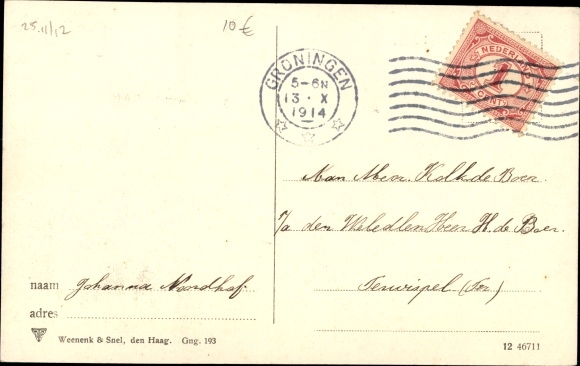 25.11/12
10 €
GRONINGEN
5-6N
13 · X
1914
NEDERLAND
1
CENT
Aan Mevr. Kolk de Boer.
p/a den Weledlen Heer H. de Boer.
Terwispel (Fr.)
naam Johanna Noordhof.
adres
Weenenk & Snel, den Haag. Gng. 193
12 46711